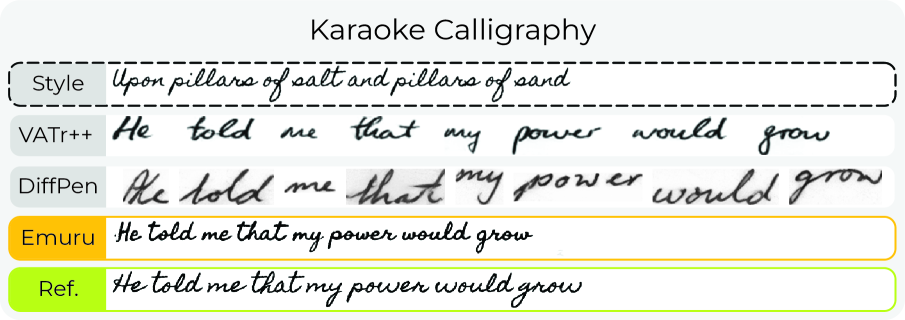 Karaoke Calligraphy
Style Upon pillars of salt and pillars of sand
VATr++ He told me that my power would grow
DiffPen He told me that my power would grow
Emuru He told me that my power would grow
Ref. He told me that my power would grow